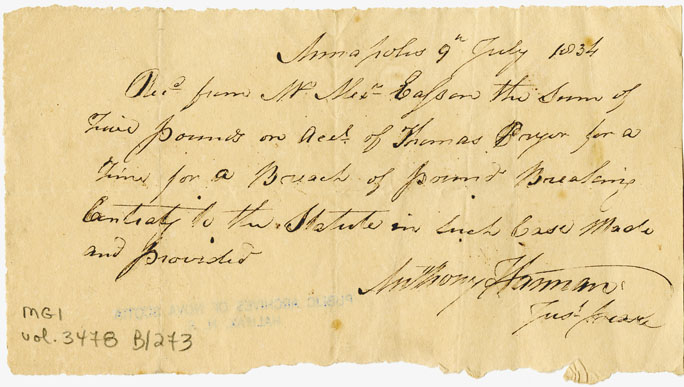 Annapolis 9th July 1834
Recd from Mr Alexr Easson the Sum of
Five Pounds on Acct of Thomas Pryor for a
Fine for a Breach of Pound Breaking
Contrary to the Statute in such Case Made
and Provided
Anthony Hannan
Jus. Peace
MG1
vol. 3478 B/273
PUBLIC ARCHIVES OF NOVA SCOTIA
HALIFAX N. S.